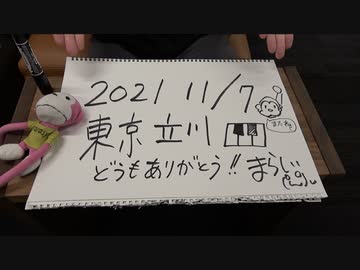 2021 11/7
またね
東京 立川
どうもありがとう!! まらしぃ